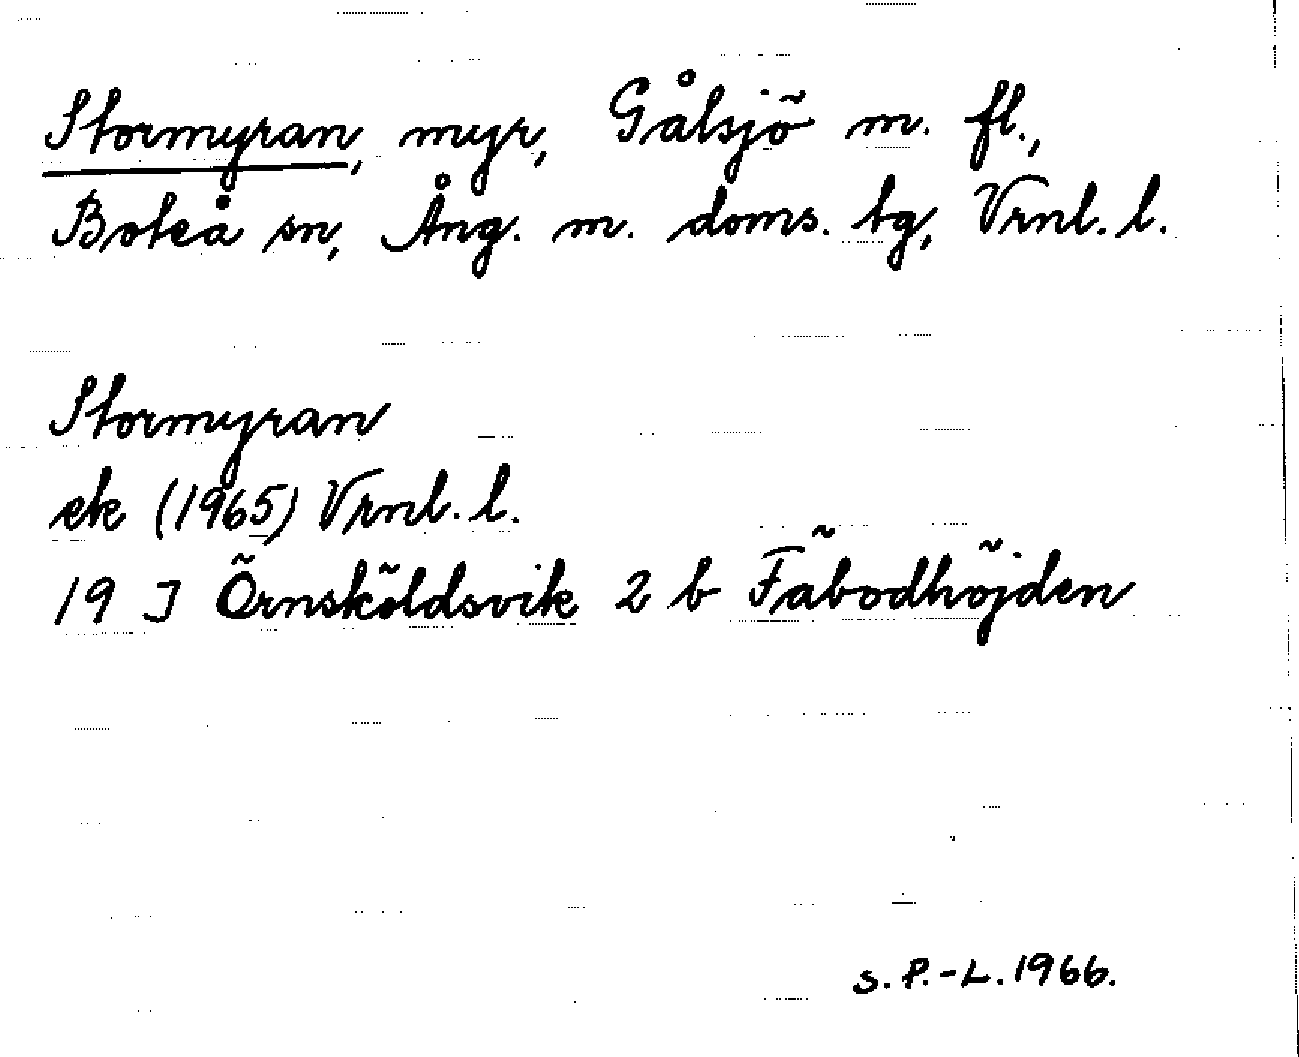 Stormyran, myr, Gålsjö m. fl.,
Boteå sn, Ång. m. doms. tg, Vrnl. l.
Stormyran
ek (1965) Vrnl. l.
19 J Örnsköldsvik 2 b Fäbodhöjden
S. P.-L. 1966.